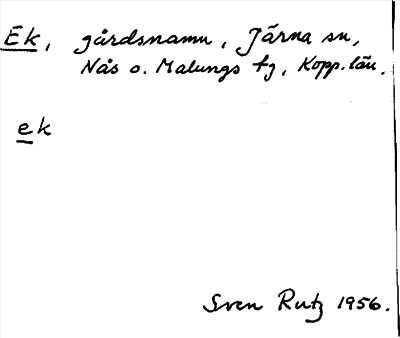 Ek, gårdsnamn, Järna sn,
Nås o. Malungs fg, Kopp. län.
ek
Sven Rutz 1956.